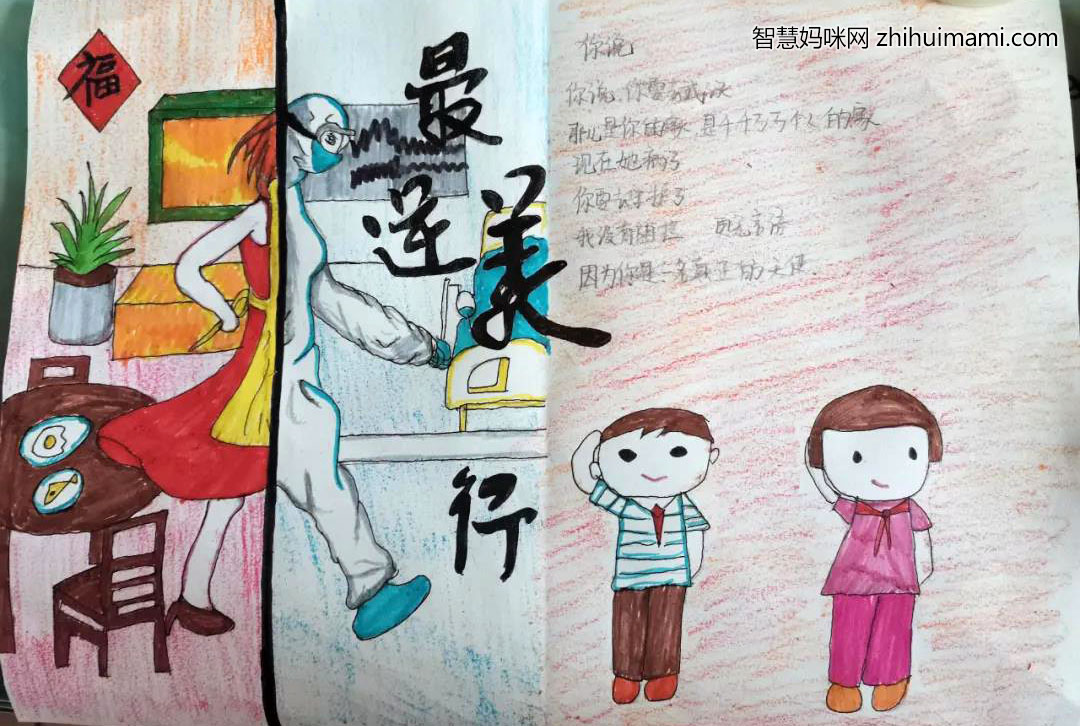 智慧妈咪网 zhihuimami.com
福
最美
逆行
你说
你说,你要去武汉
那儿是你的家,是千千万万个人的家
现在她病了
你要去保护
我没有阻拦
因为你是一名真正的天使.